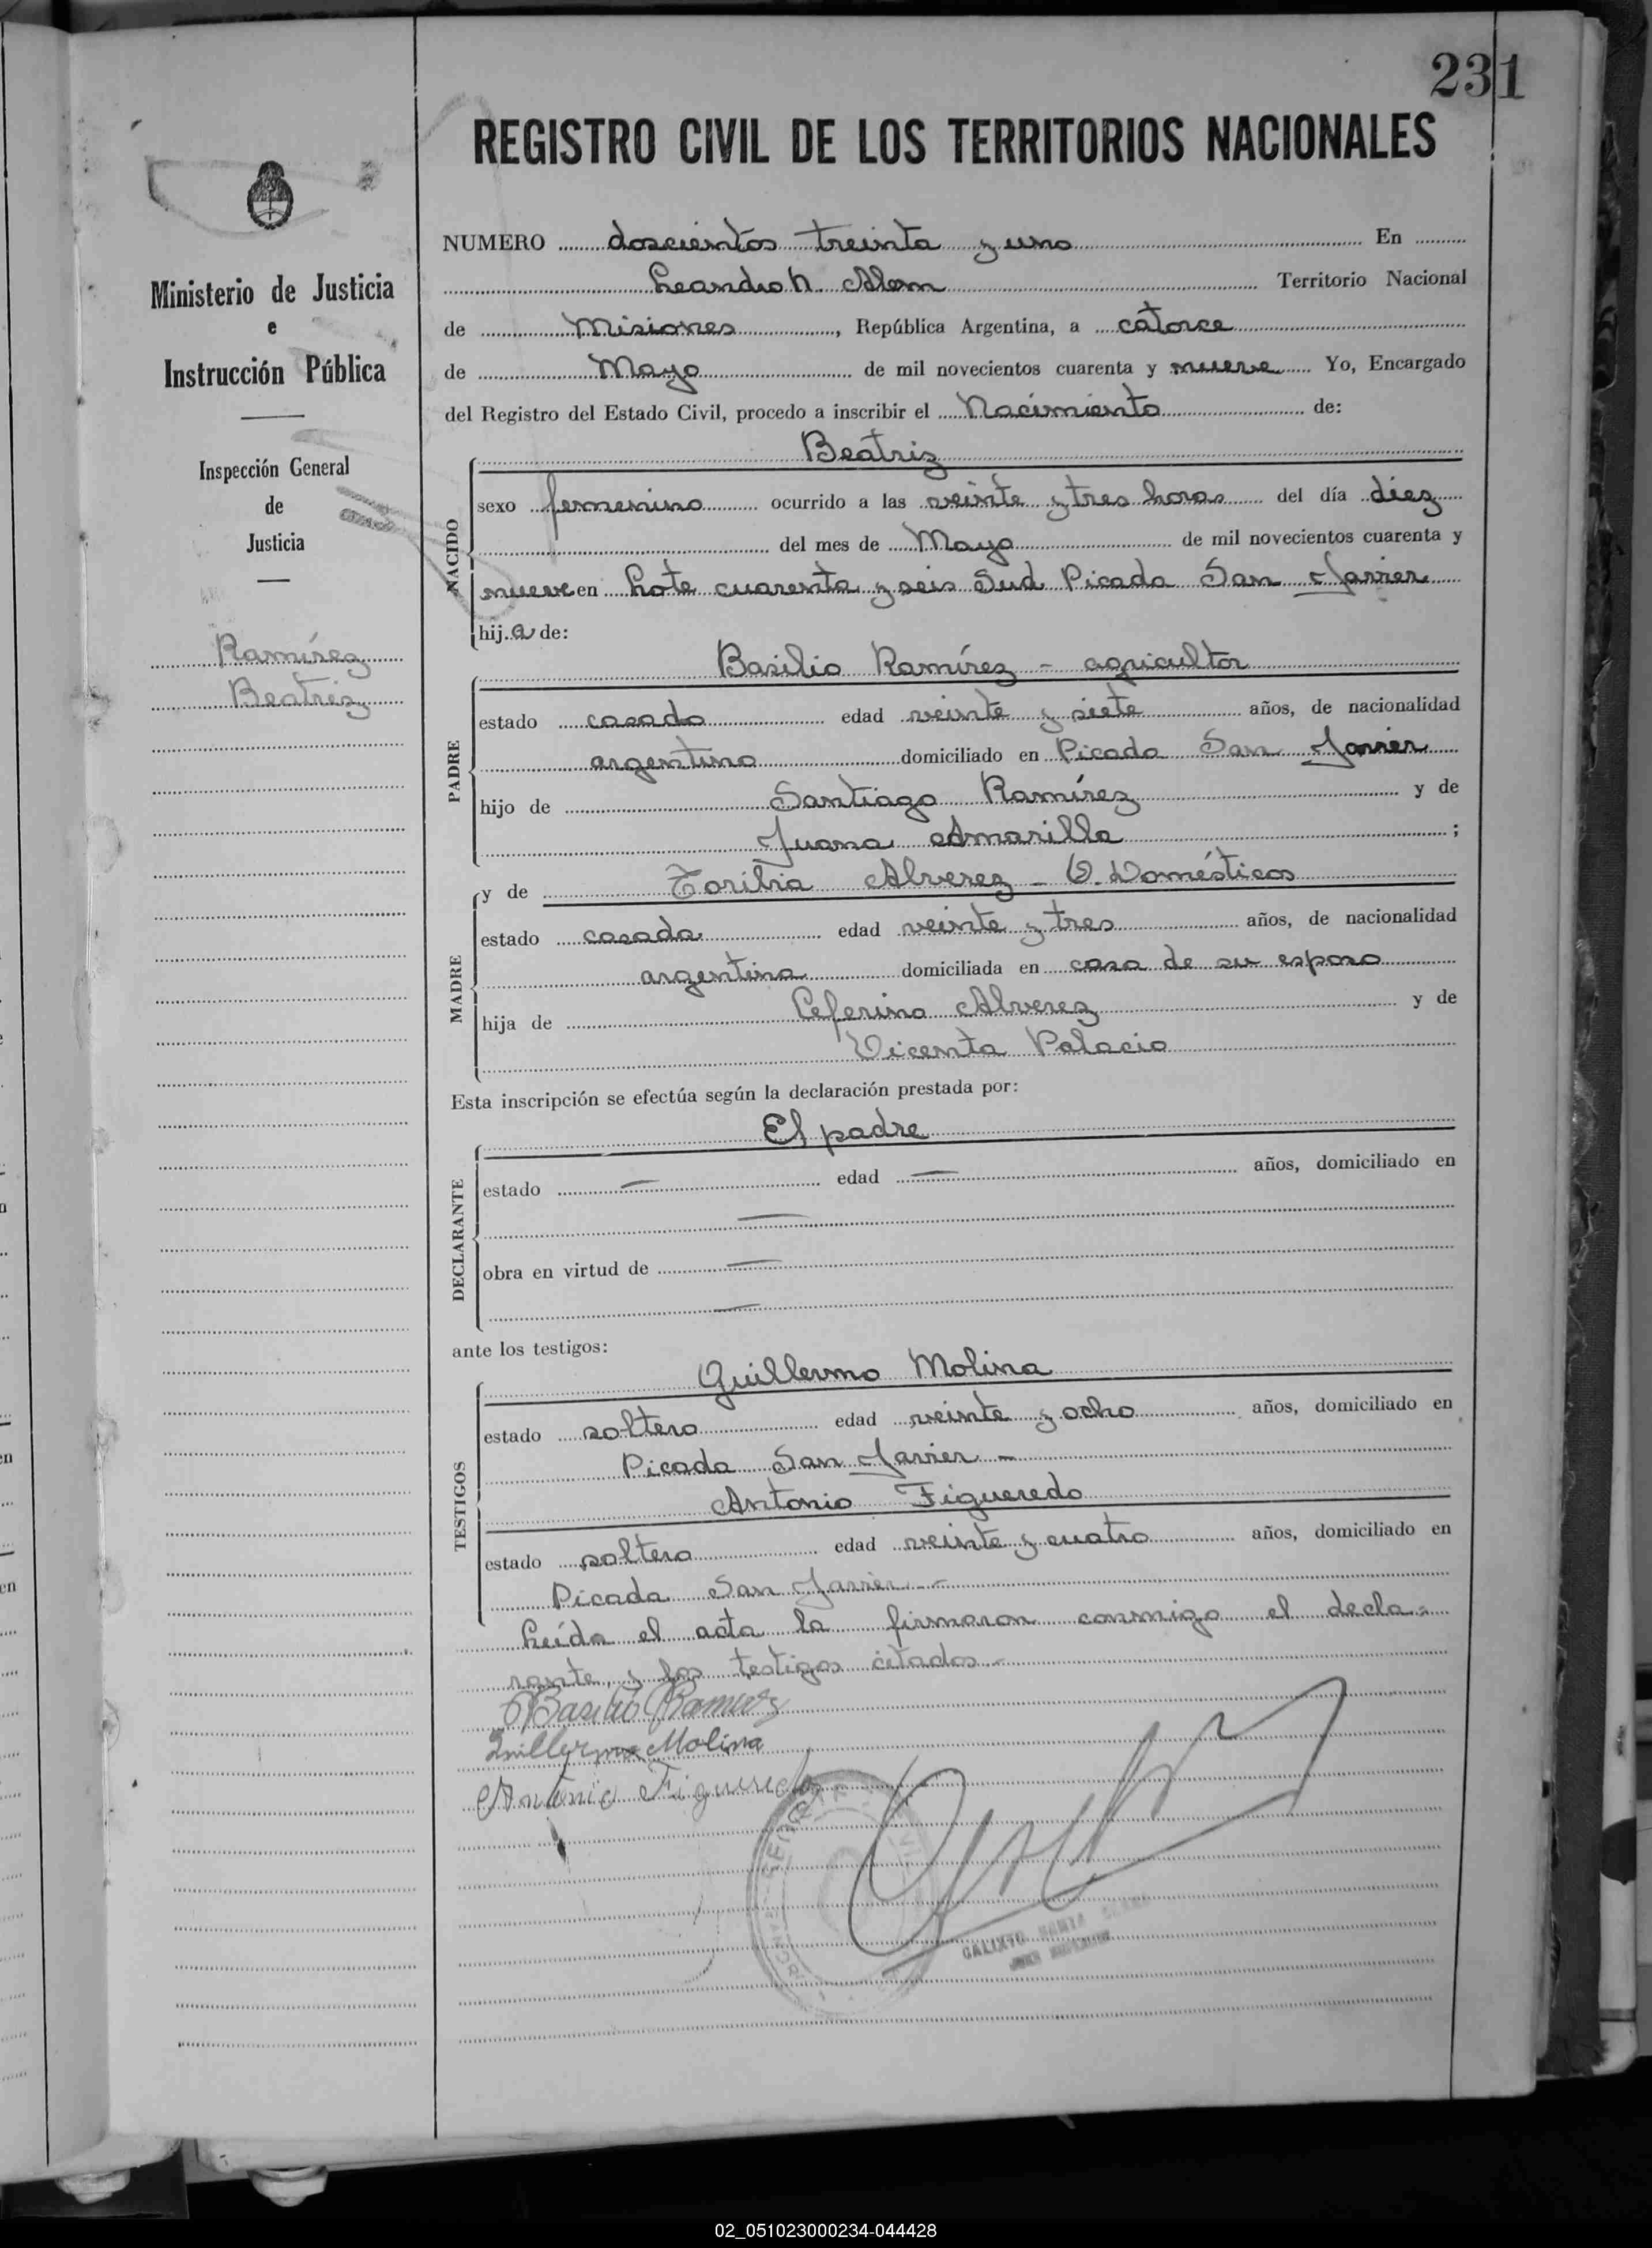 231
REGISTRO CIVIL DE LOS TERRITORIOS NACIONALES
Ministerio de Justicia
e
Instrucción Pública
Inspección General
de
Justicia
Ramírez
Beatriz
NUMERO doscientos treinta y uno En
Leandro N. Alem Territorio Nacional
de Misiones, República Argentina, a catorce
de Mayo de mil novecientos cuarenta y nueve Yo, Encargado
del Registro del Estado Civil, procedo a inscribir el Nacimiento de:
NACIDO
Beatriz
sexo femenino ocurrido a las veinte y tres horas del día diez
del mes de Mayo de mil novecientos cuarenta y
nueve en Lote cuarenta y seis Sud Picada San Javier
hij.a de:
PADRE
Basilio Ramírez - agricultor
estado casado edad veinte y siete años, de nacionalidad
argentino domiciliado en Picada San Javier
hijo de Santiago Ramírez y de
Juana Amarilla ;
MADRE
y de Toribia Alverez - Q. Domésticos
estado casada edad veinte y tres años, de nacionalidad
argentina domiciliada en casa de su esposo
hija de Ceferino Alverez y de
Vicenta Palacio
Esta inscripción se efectúa según la declaración prestada por:
DECLARANTE
El padre
estado — edad — años, domiciliado en
—
obra en virtud de —
—
ante los testigos:
TESTIGOS
Guillermo Molina
estado soltero edad veinte y ocho años, domiciliado en
Picada San Javier -
Antonio Figueredo
estado soltero edad veinte y cuatro años, domiciliado en
Picada San Javier -
Leída el acta la firmaron conmigo el decla-
rante, y los testigos citados -
Basilio Ramirez
Guillermo Molina
Antonio Figueredo
CALIXTO SANTA
02_051023000234-044428